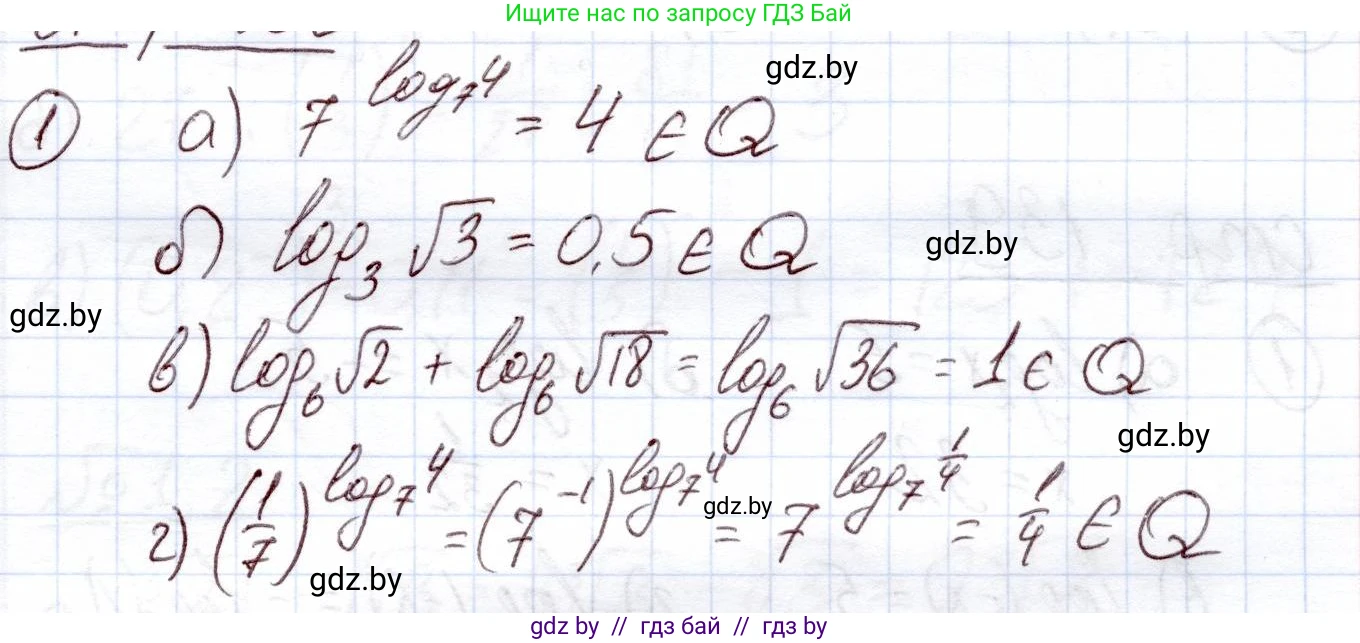 Ищите нас по запросу ГДЗ Бай
gdz.by
① а) 7^{log_7 4} = 4 ∈ Q
б) log_3 √3 = 0,5 ∈ Q
gdz.by
gdz.by
в) log_6 √2 + log_6 √18 = log_6 √36 = 1 ∈ Q
gdz.by
г) (1/7)^{log_7 4} = (7^{-1})^{log_7 4} = 7^{log_7 1/4} = 1/4 ∈ Q
gdz.by
gdz.by
gdz by // гдз бай // гдз by